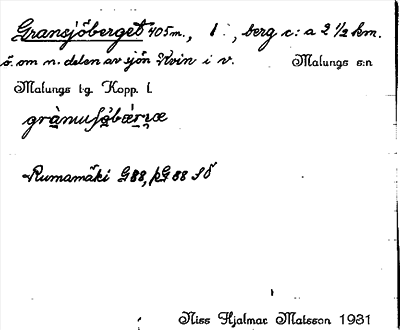 Gransjöberget 405 m., 1 , berg c:a 2 1/2 km.
ö. om n. delen av sjön Kvin i v. Malungs s:n
Malungs tg. Kopp. l.
Rumamäki G88, pG 88 SÖ
Niss Hjalmar Matsson 1931